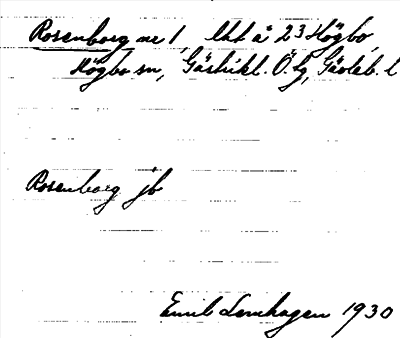 Rosenborg nr 1, lht å 23 Högbo,
Högbo sn, Gästrikl. Ö. tg, Gävleb. l
Rosenborg jb
Emil Lernhagen 1930